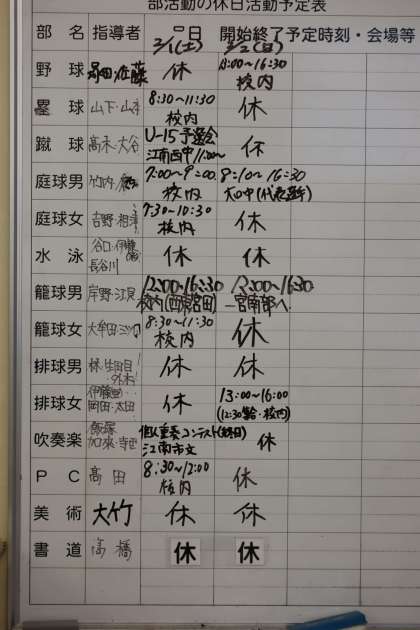 部活動の休日活動予定表
部 名 指導者 月日 開始終了予定時刻・会場等
2/1(土) 2/2(日)
野 球 休 8:00〜16:30
校内
塁 球 山下・山本 8:30〜11:30 休
校内
蹴 球 高木・大谷 U-15予選会 休
江南西中 11:00〜
庭球男 竹内・ 7:00〜9:00 8:10〜16:30
校内 大口中(代表選手)
庭球女 吉野・相澤 7:30〜10:30 休
校内
水 泳 谷口・伊藤 休 休
長谷川
籠球男 岸野・江良 12:00〜16:30 12:00〜16:30
校内 一宮南部へ
籠球女 大牟田・三ツ口 8:30〜11:30 休
校内
排球男 林・生田目 休 休
排球女 伊藤 休 13:00〜16:00
岡田・太田 (12:30集合・校内)
吹奏楽 飯塚 個人重奏コンテスト 休
加来・寺西 江南市文
P C 高田 8:30〜12:00 休
校内
美 術 大竹 休 休
書 道 高橋 休 休